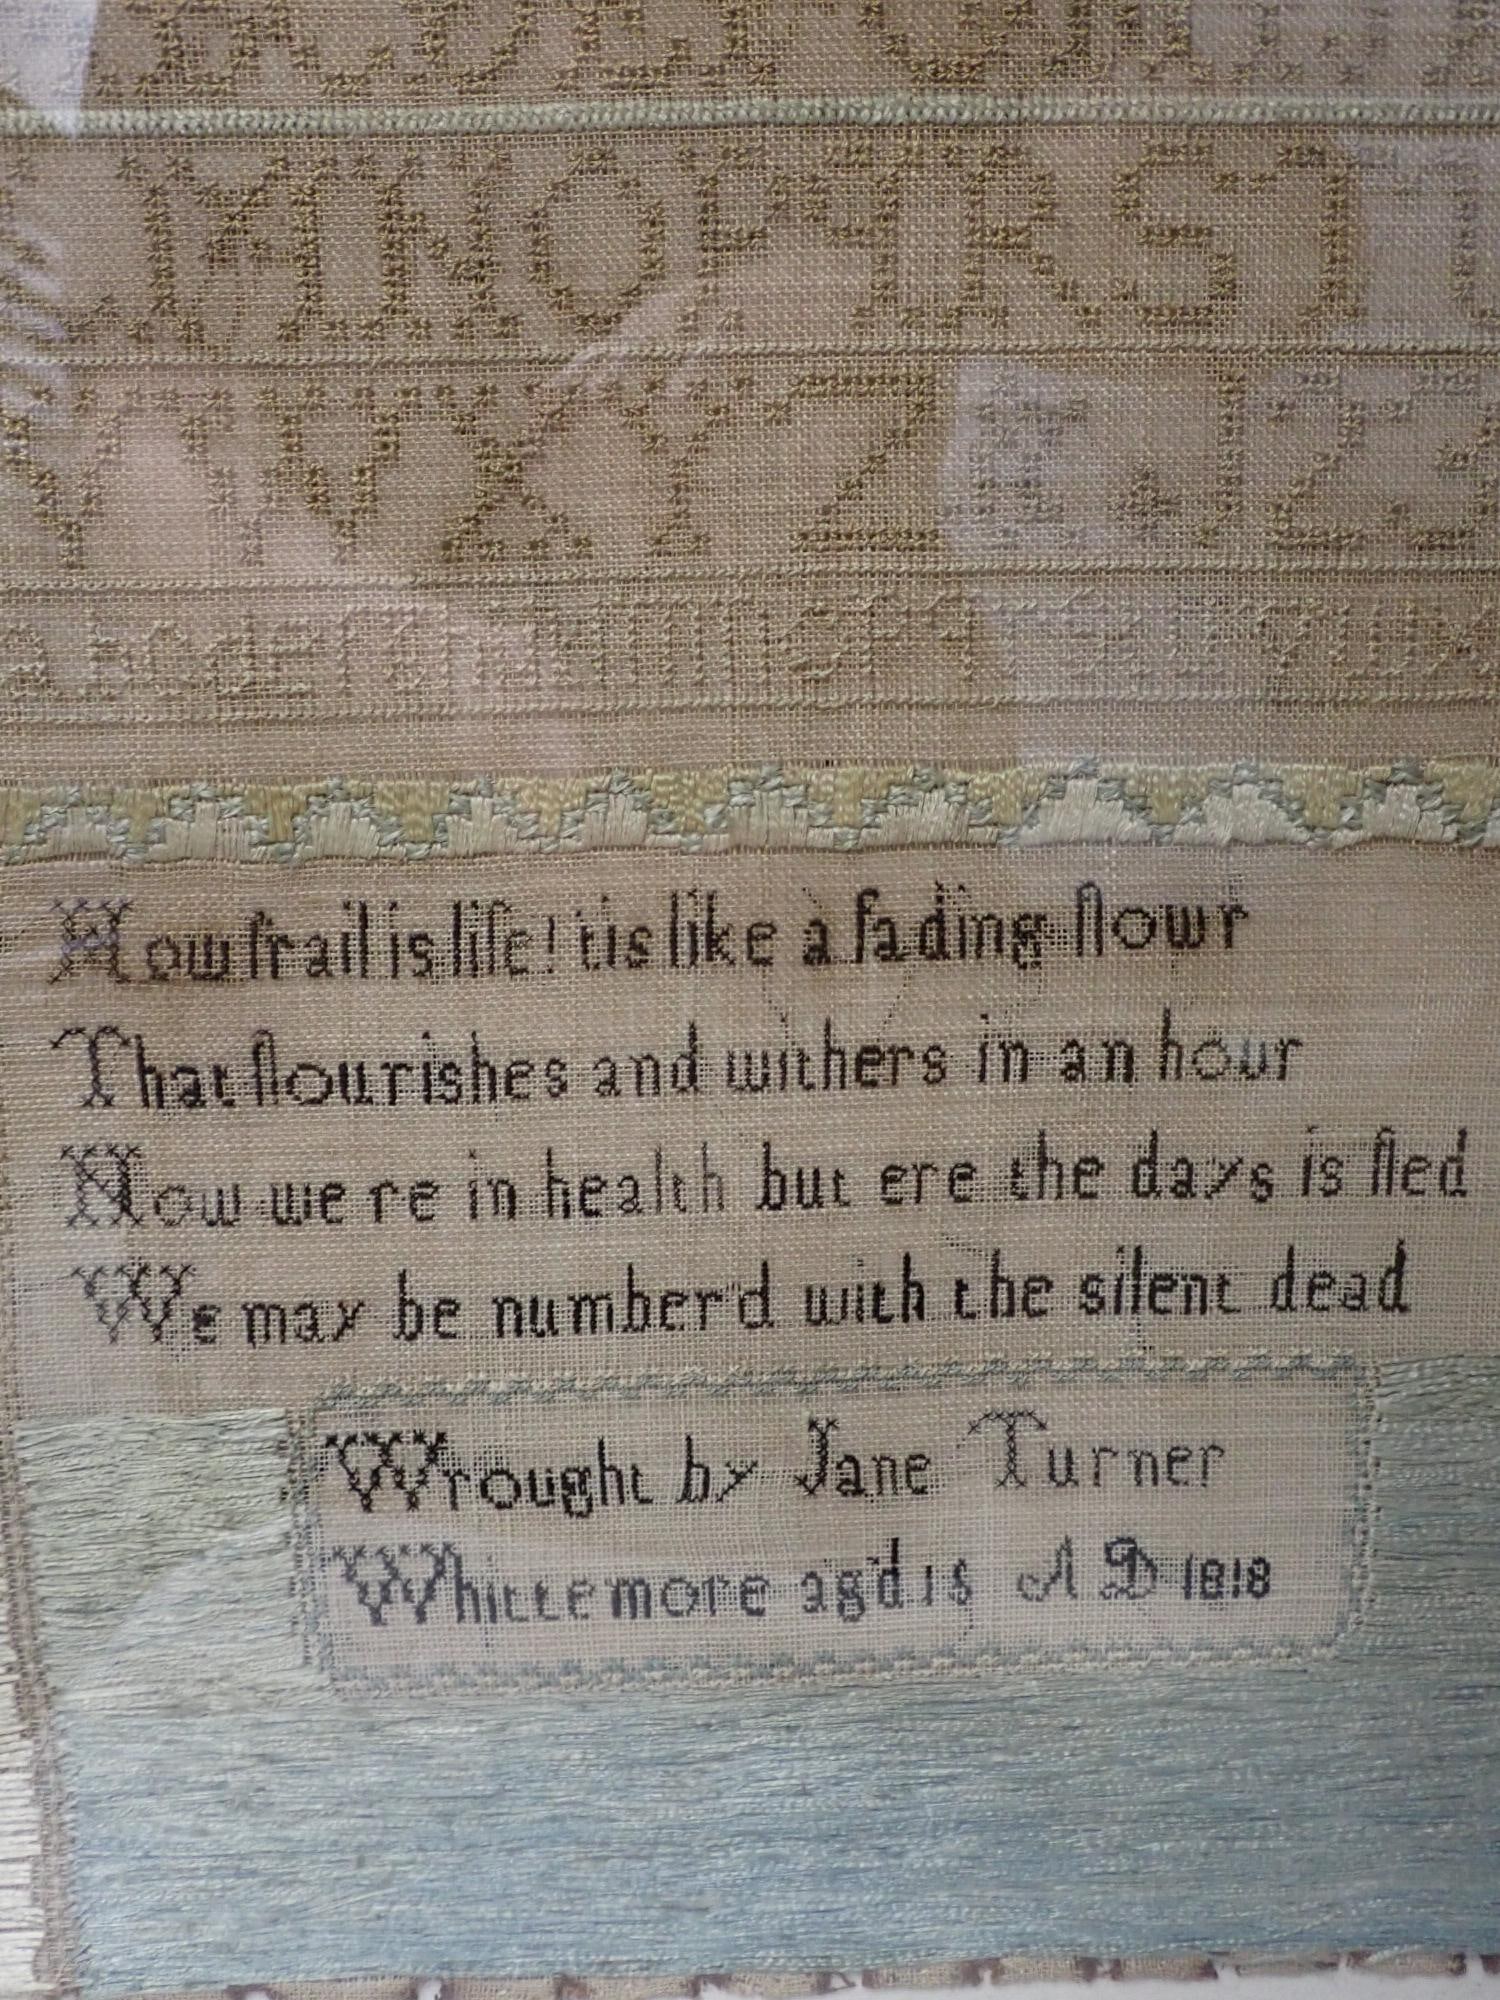 M N O P Q R S T
V W X Y Z & . 1 2 3
a b c d e f g h
How frail is life! tis like a fading flowr
That flourishes and withers in an hour
Now we re in health but ere the days is fled
We may be number'd with the silent dead
Wrought by Jane Turner
Whittemore ag'd 15 A D 1818